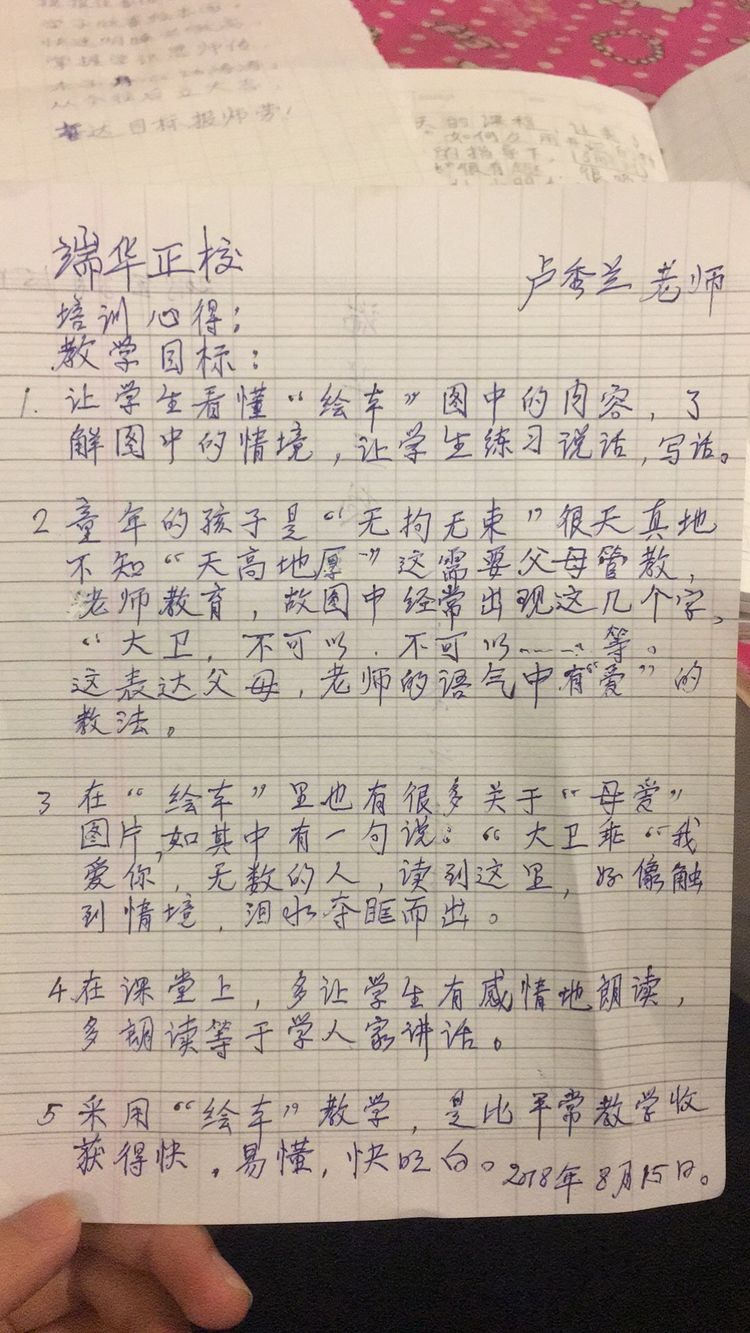 达目标.报师劳!
的指导下,
端华正校
卢秀兰老师
培训心得:
教学目标:
1. 让学生看懂“绘车”图中的内容,了
解图中的情境,让学生练习说话,写话。
2 童年的孩子是“无拘无束”很天真地
不知“天高地厚”这需要父母管教,
老师教育,故图中经常出现这几个字,
“大卫,不可以.不可以……等。
这表达父母,老师的语气中有“爱”的
教法。
3 在“绘车”里也有很多关于“母爱”
图片,如其中有一句说:“大卫乖“我
爱你,无数的人,读到这里,好像触
到情境,泪水夺眶而出。
4.在课堂上,多让学生有感情地朗读,
多朗读等于学人家讲话。
5 采用“绘车”教学,是比平常教学收
获得快,易懂,快明白。2018年8月15日。